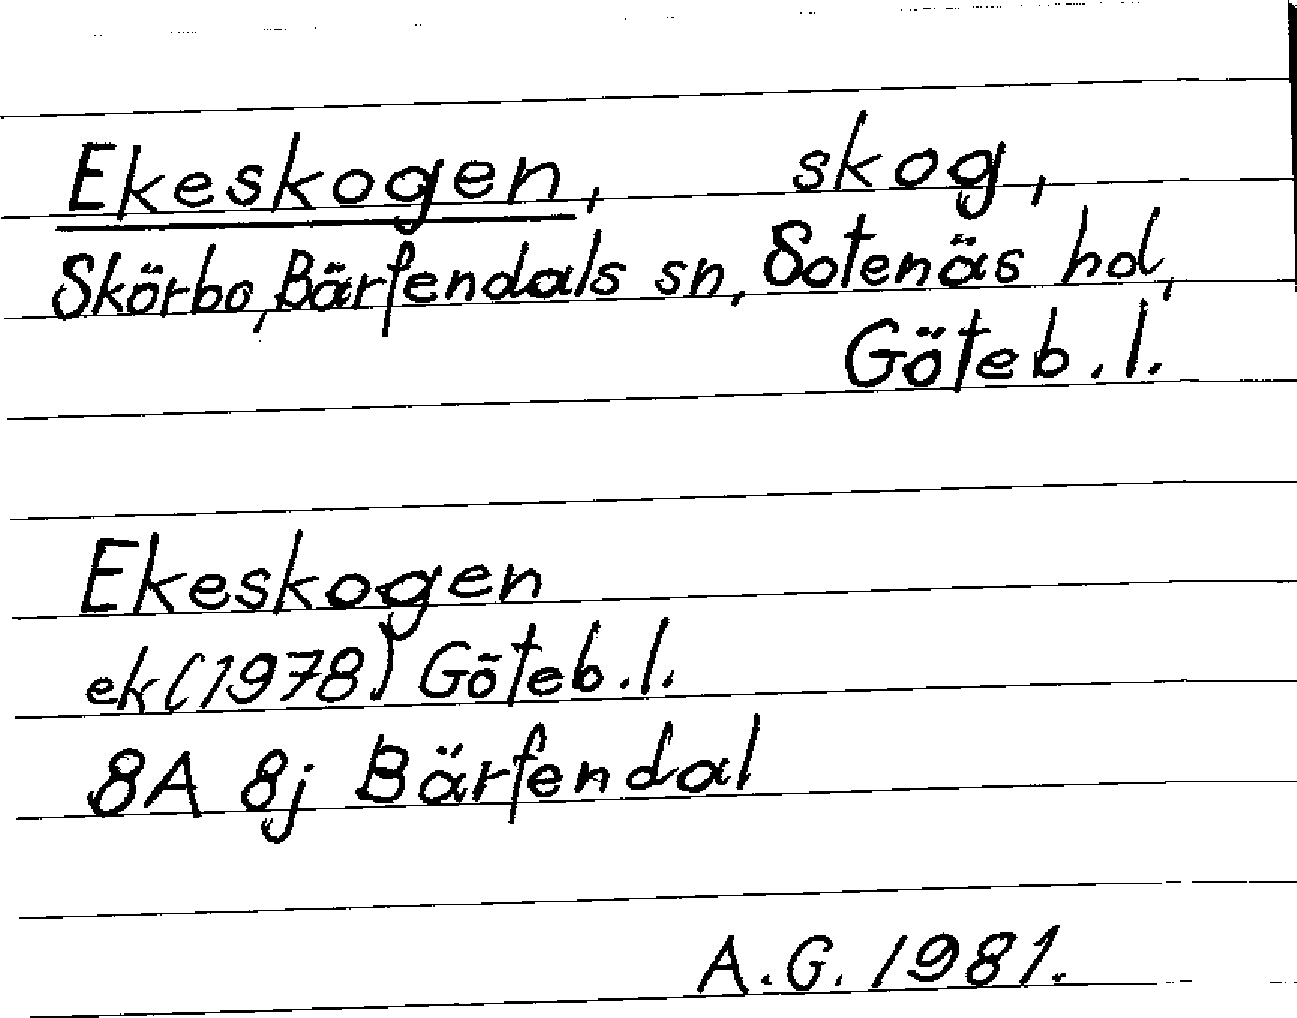 Ekeskogen, skog,
Skörbo, Bärfendals sn, Sotenäs hd,
Göteb. l.
Ekeskogen
ek (1978) Göteb. l.
8A 8j Bärfendal
A.G. 1981.